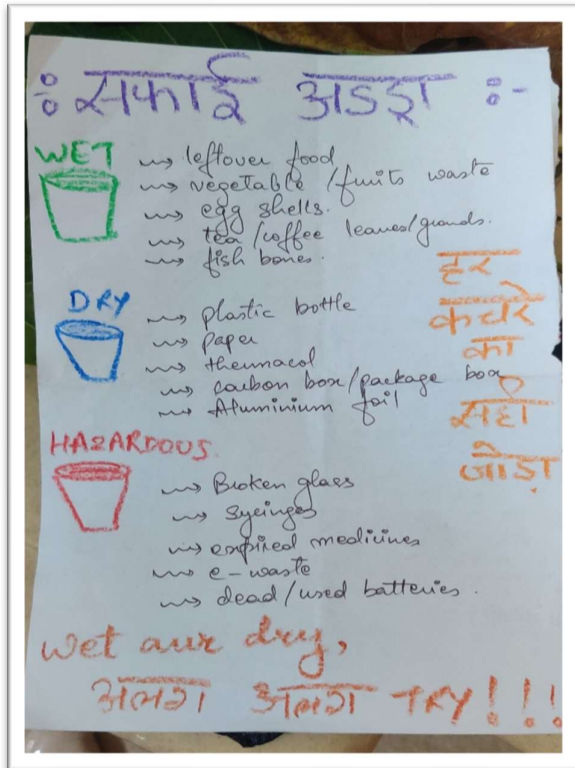 :सफाई अडड्रा :-
WET
⇝ leftover food
⇝ vegetable /fruits waste
⇝ egg shells.
⇝ tea/coffee leaves/grounds.
⇝ fish bones.
DRY
⇝ plastic bottle
⇝ paper
⇝ thermacol
⇝ carbon box/package box
⇝ Aluminium foil
हर
कचरे
का
सही
जोड़ा
HAZARDOUS
⇝ Broken glass
⇝ syeinges
⇝ expired medicines
⇝ e-waste
⇝ dead/used batteries.
wet aur dry,
अलग अलग TRY!!!